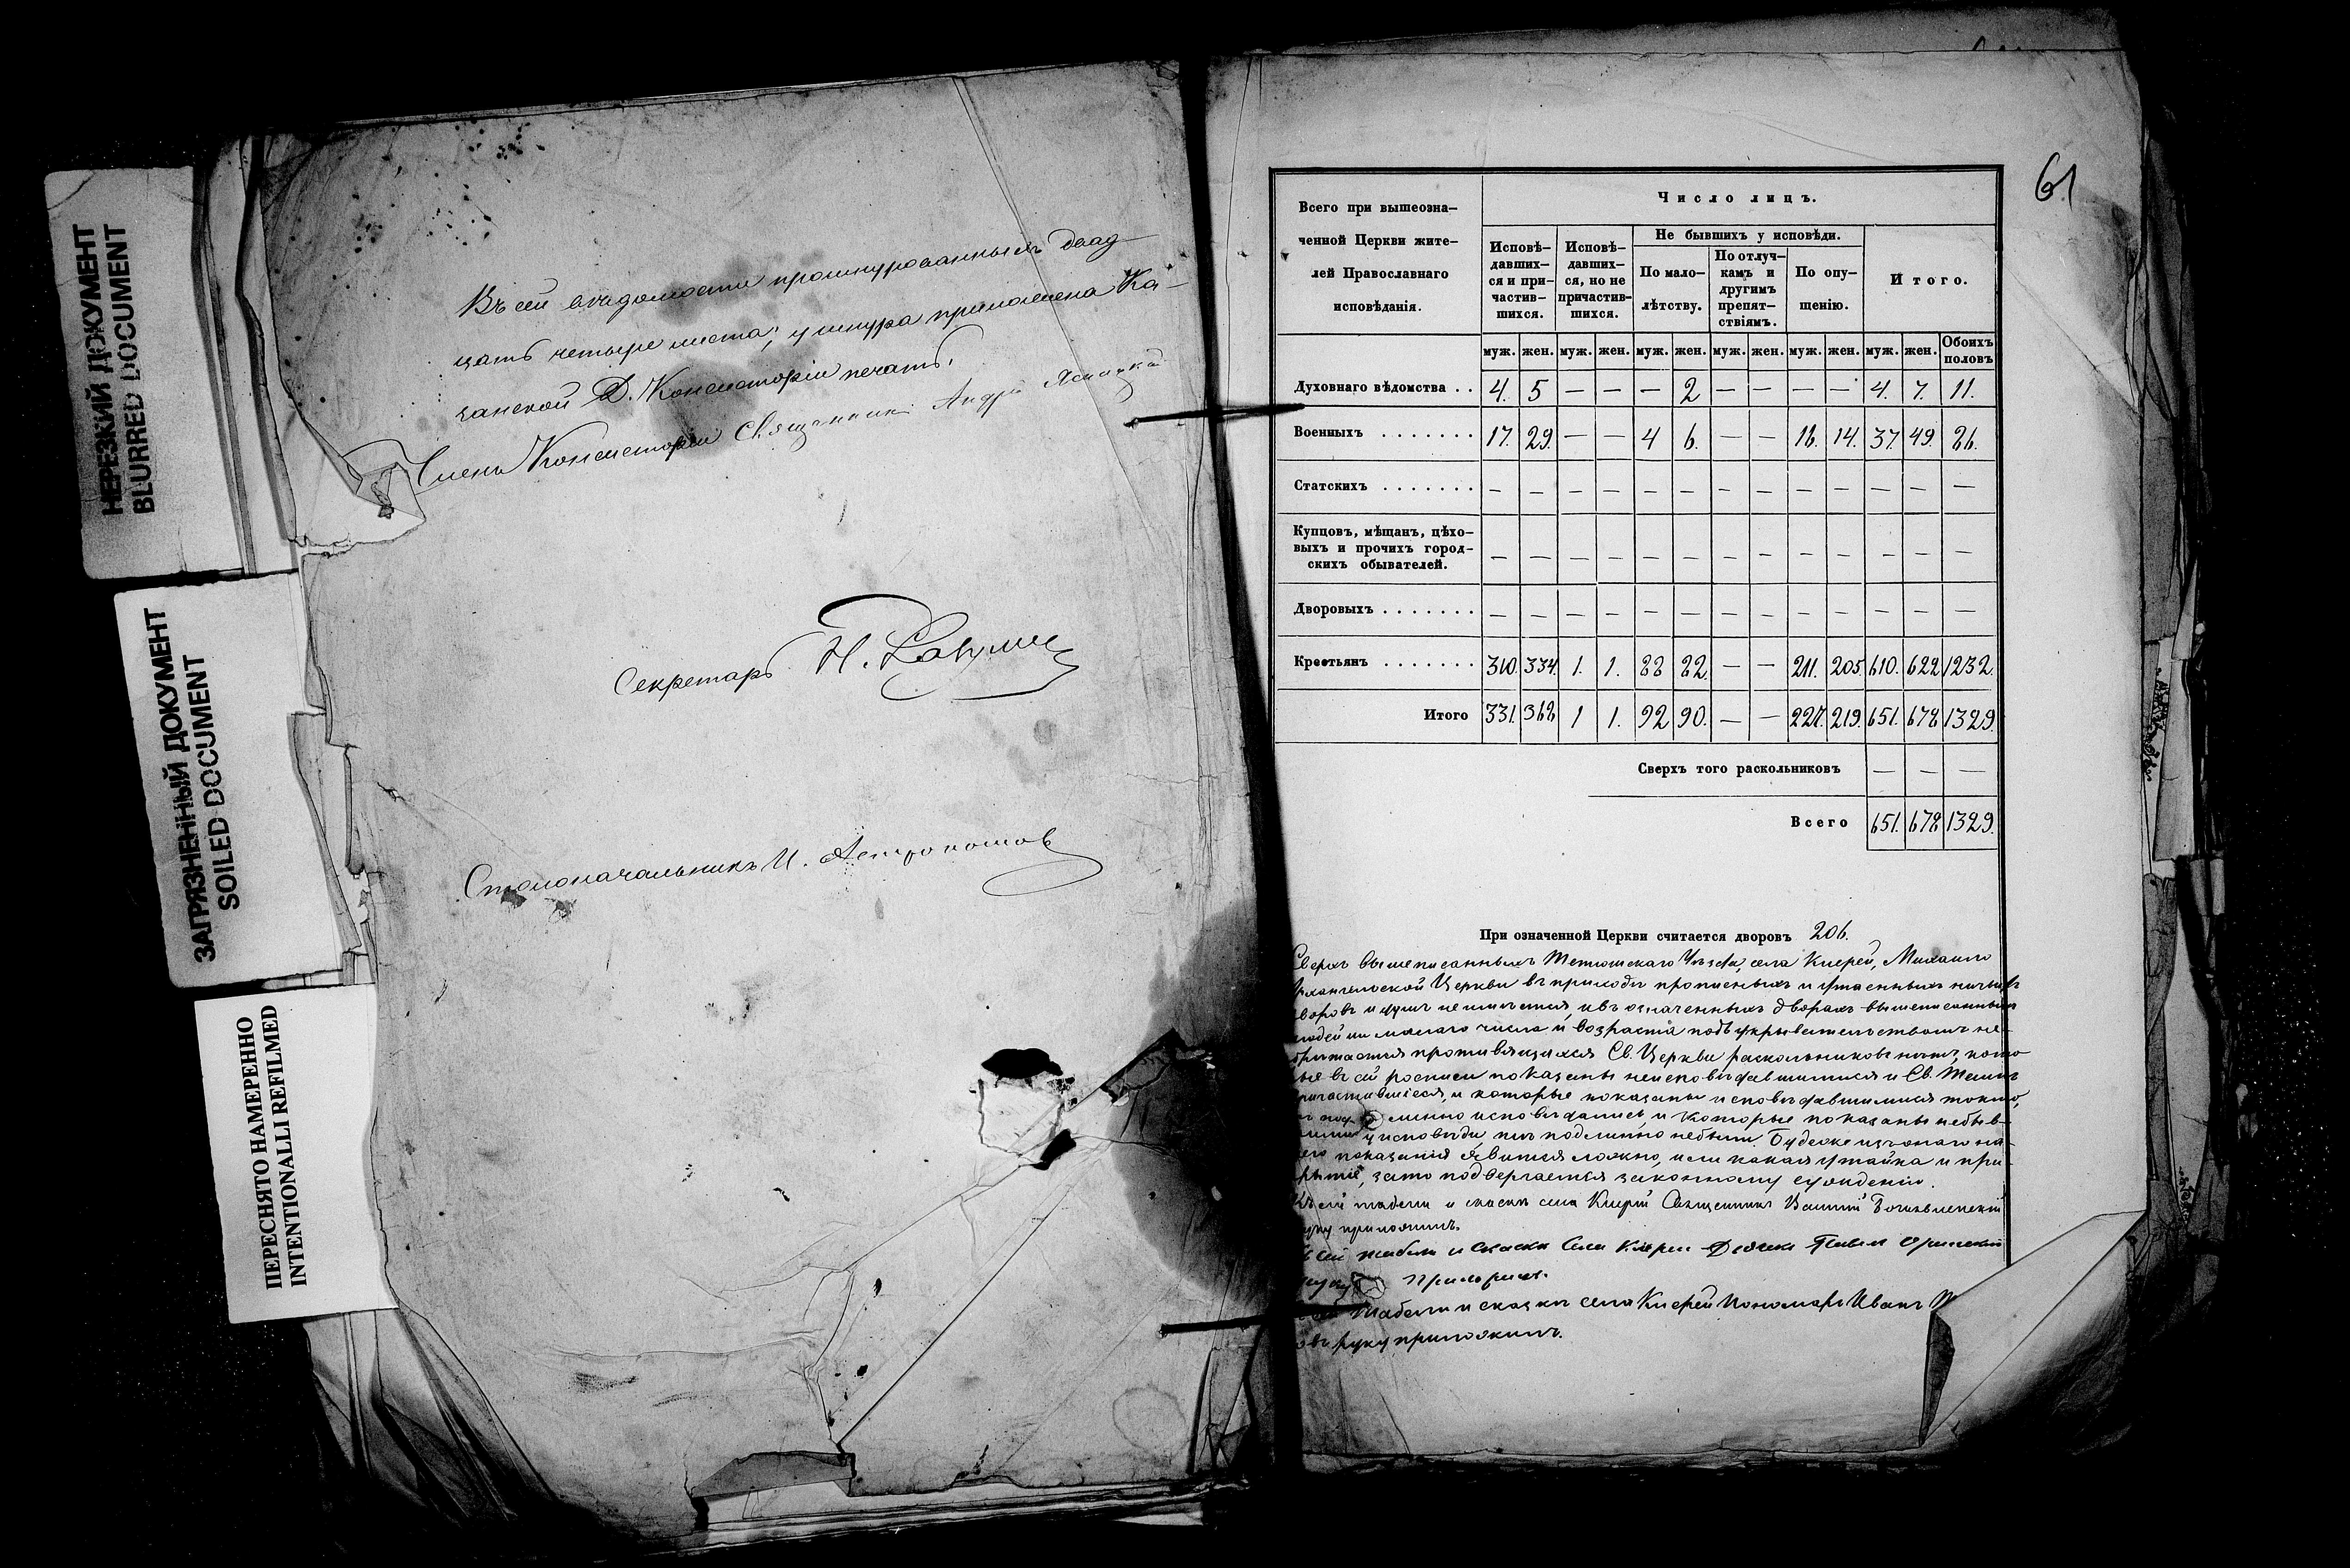 НЕРЕЗКИЙ ДОКУМЕНТ
BLURRED DOCUMENT
ЗАГРЯЗНЕННЫЙ ДОКУМЕНТ
SOILED DOCUMENT
ПЕРЕСНЯТО НАМЕРЕННО
INTENTIONALLI REFILMED
Въ сей ведомости прошнурованныхъ двад-
цать четыре листа; у шнура приложена Ка-
занской Д. Консисторіи печать.
Членъ Консисторіи Священникъ Андрей
Секретарь Н.
Столоначальникъ И.
61
Всего при вышеозна-
ченной Церкви жите-
лей Православнаго
исповѣданія.
Число лицъ.
Исповѣ-
давших-
ся и при-
частив-
шихся.
Исповѣ-
давших-
ся, но не
причастив-
шихся.
Не бывшихъ у исповѣди.
По мало-
лѣтству.
По отлуч-
камъ и
другимъ
препят-
ствіямъ.
По опу-
щенію.
Итого.
муж. жен. муж. жен. муж. жен. муж. жен. муж. жен. муж. жен. Обоихъ половъ
Духовнаго вѣдомства . . 4. 5 — — — 2 — — — — 4. 7. 11.
Военныхъ . . . . . . . 17. 29. — — 4 6. — — 16. 14. 37. 49. 86.
Статскихъ . . . . . . . — — — — — — — — — — — — —
Купцовъ, мѣщанъ, цѣхо-
выхъ и прочихъ город-
скихъ обывателей. — — — — — — — — — — — — —
Дворовыхъ . . . . . . . — — — — — — — — — — — — —
Крестьянъ . . . . . . . 310. 334. 1. 1. 88 82 — — 211. 205 610. 622 1232.
Итого 331. 368 1 1. 92 90. — — 227. 219. 651. 678 1329.
Сверхъ того раскольниковъ — — —
Всего 651. 678 1329.
При означенной Церкви считается дворовъ 206.
Сверхъ вышеписанныхъ Тетюшскаго Уѣзда, села Киерей, Михаило
Архангельской Церкви въ приходѣ прописныхъ и утаенныхъ ничьихъ
дворовъ и душъ не имѣется, и въ означенныхъ дворахъ вышеписанныхъ
людей ни малаго числа и возраста подъ укрывательствомъ не
обрѣтается противящихся Св. Церкви раскольниковъ нѣтъ, кото
рые въ сей росписи показаны исповѣдавшимися и Св. Таинъ
причастившіеся, и которые показаны исповѣдавшимися токмо,
исповѣдались, и которые показаны небыв-
шими у исповѣди, тѣ подлинно небыли. Будеже изъ онаго на-
шего показанія явится ложно, или какая утайка и при-
крытіе, зато подвергается законному сужденію.
Къ сей табели и сказкѣ села Киерей Священникъ Василій Богоявленскій
руку приложилъ.
Къ сей табели и сказки Села Киерей Дьячекъ Павелъ
руку Приложилъ.
табели и сказкѣ села Киерей Пономарь Иванъ
руку приложилъ.